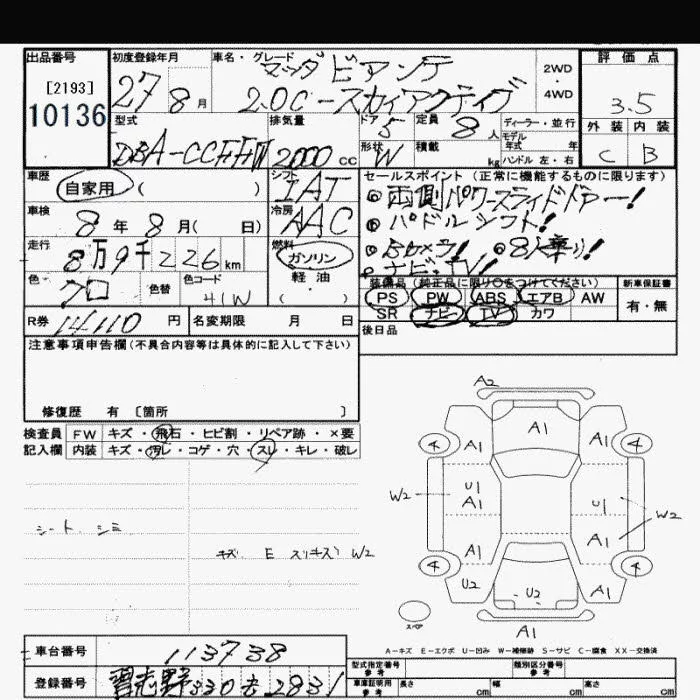 出品番号 初度登録年月 車名・グレード マツダ ビアンテ 2WD・4WD 評価点
[2193]
10136
27 8月 2.0C-スカイアクティブ 3.5
型式 排気量 ドア 5 定員 8人 ディーラー・並行 外装 内装
モデル年式 年
DBA-CC 2000cc 形状 W 積載 kg ハンドル 左・右 C B
車歴 自家用 ( ) シフト IAT セールスポイント (正常に機能するものに限ります)
車検 8年 8月( 日) 冷房 AAC
両側パワースライドドアー!
パドルシフト!
走行 8万9千226km 燃料 ガソリン 軽・油 ( )
Bカメラ! 8人乗り!
ナビ・TV!
色 クロ 色替 色コード 41W
装備品 (純正品に限り○をつけてください) 新車保証書
PS PW ABS エアB AW 有・無
SR ナビ TV カワ
R券 14110円 名変期限 月 日
後日品
注意事項申告欄(不具合内容等は具体的に記入して下さい)
修復歴 有 〔箇所 〕
検査員 FW キズ・飛石・ヒビ割・リペア跡・×要
記入欄 内装 キズ・汚レ・コゲ・穴・スレ・キレ・破レ
シート シミ
キズ E スリキズ W2
A2
A1
4 A1 A1 4
W2 U1 A1 U1 W2
A1 A1
4 4
U2 U2 A1
スペア
A1
A-キズ E-エクボ U-凹み W-補修跡 S-サビ C-腐食 XX-交換済
車台番号 113738
登録番号 習志野 330 2831
型式指定番号 参考 類別区分番号 参考
車庫証明用 参考 長さ cm 幅 cm 高さ cm